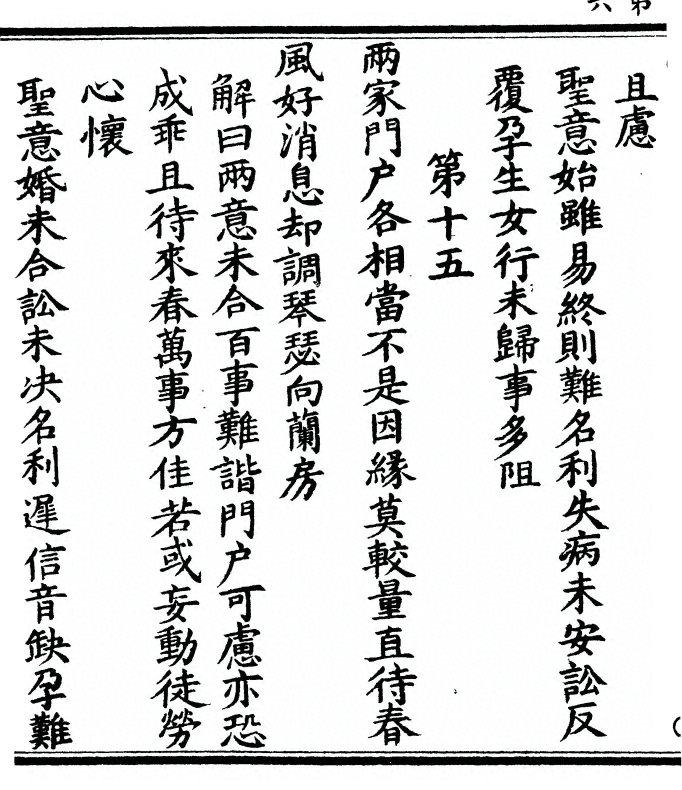 第六
且慮
聖意始雖易終則難名利失病未安訟反
覆孕生女行未歸事多阻
第十五
兩家門户各相當不是因緣莫較量直待春
風好消息却調琴瑟向蘭房
解曰兩意未合百事難諧門户可慮亦恐
成乖且待來春萬事方佳若或妄動徒勞
心懷
聖意婚未合訟未决名利遲信音缺孕難